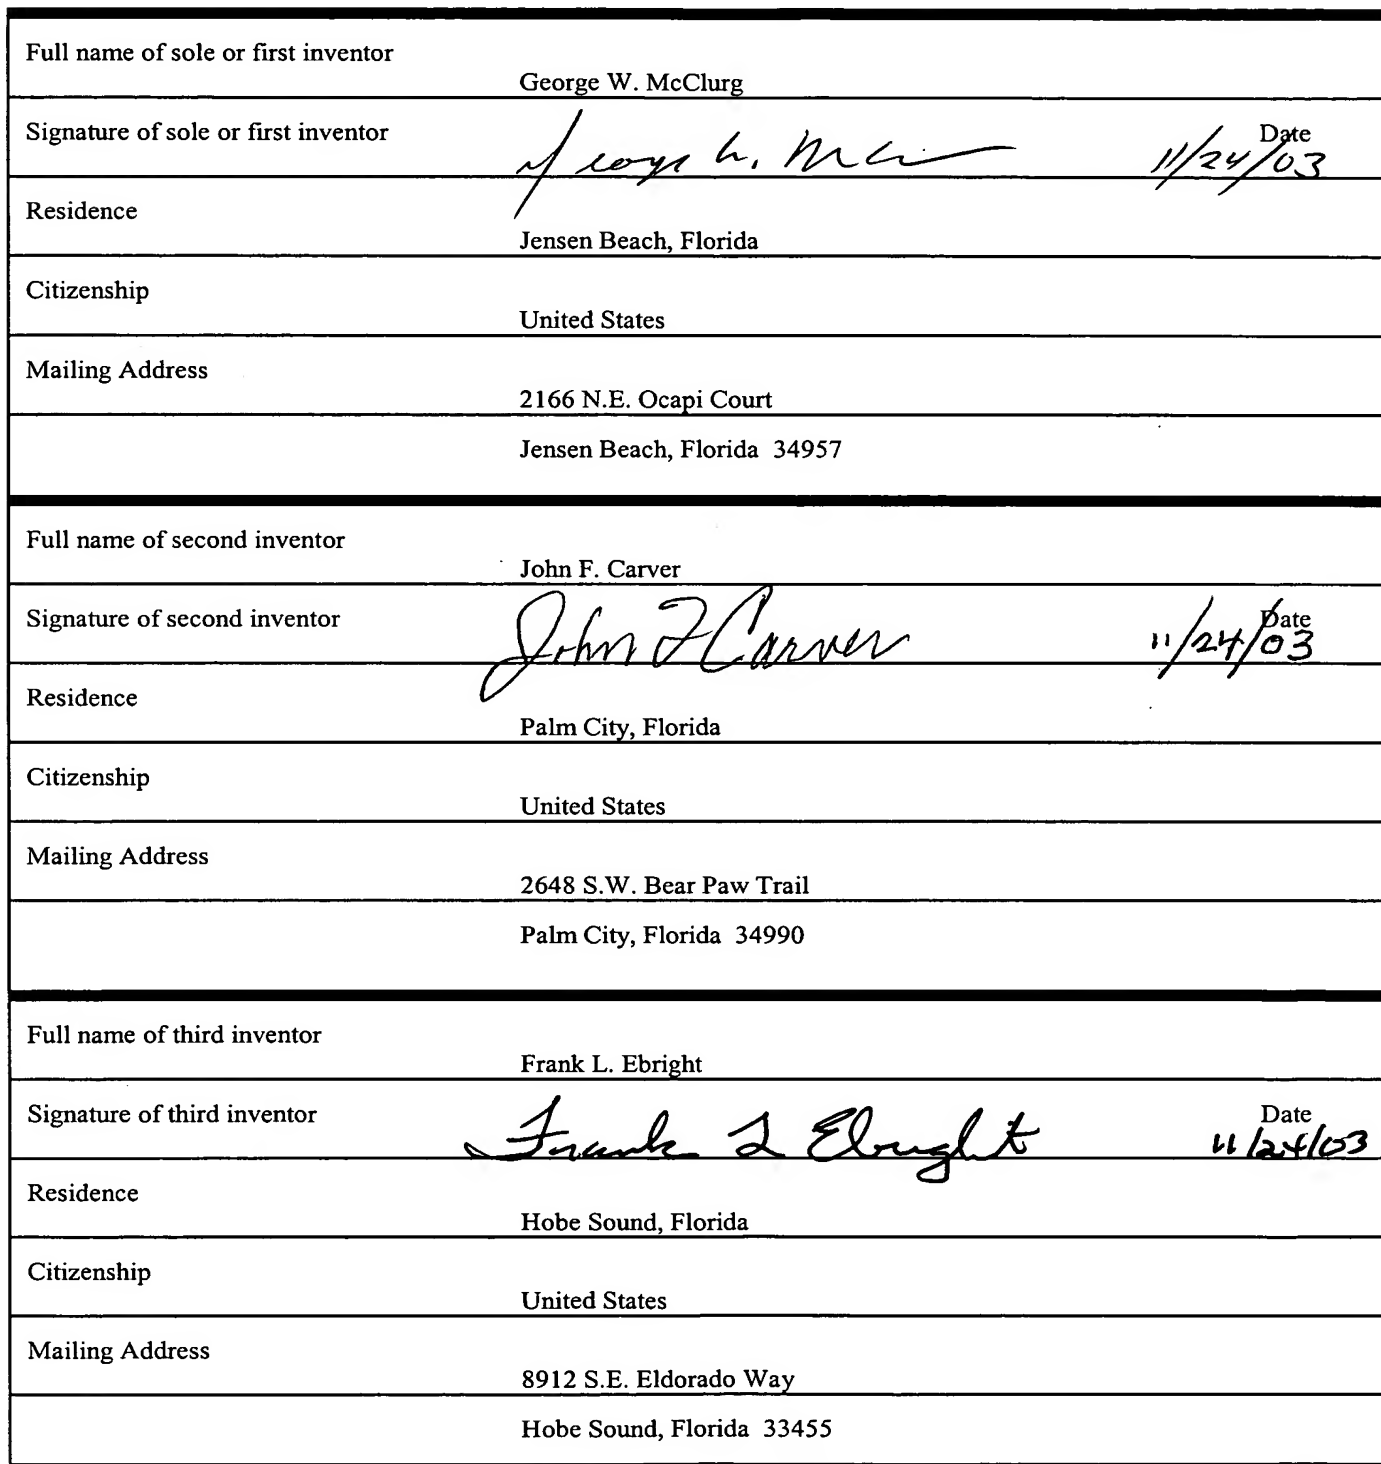 Full name of sole or first inventor
George W. McClurg
Signature of sole or first inventor
George W. Date
11/24/03
Residence
Jensen Beach, Florida
Citizenship
United States
Mailing Address
2166 N.E. Ocapi Court
Jensen Beach, Florida 34957
Full name of second inventor
John F. Carver
Signature of second inventor
John F Carver Date
11/24/03
Residence
Palm City, Florida
Citizenship
United States
Mailing Address
2648 S.W. Bear Paw Trail
Palm City, Florida 34990
Full name of third inventor
Frank L. Ebright
Signature of third inventor
Frank L Ebright Date
11/24/03
Residence
Hobe Sound, Florida
Citizenship
United States
Mailing Address
8912 S.E. Eldorado Way
Hobe Sound, Florida 33455